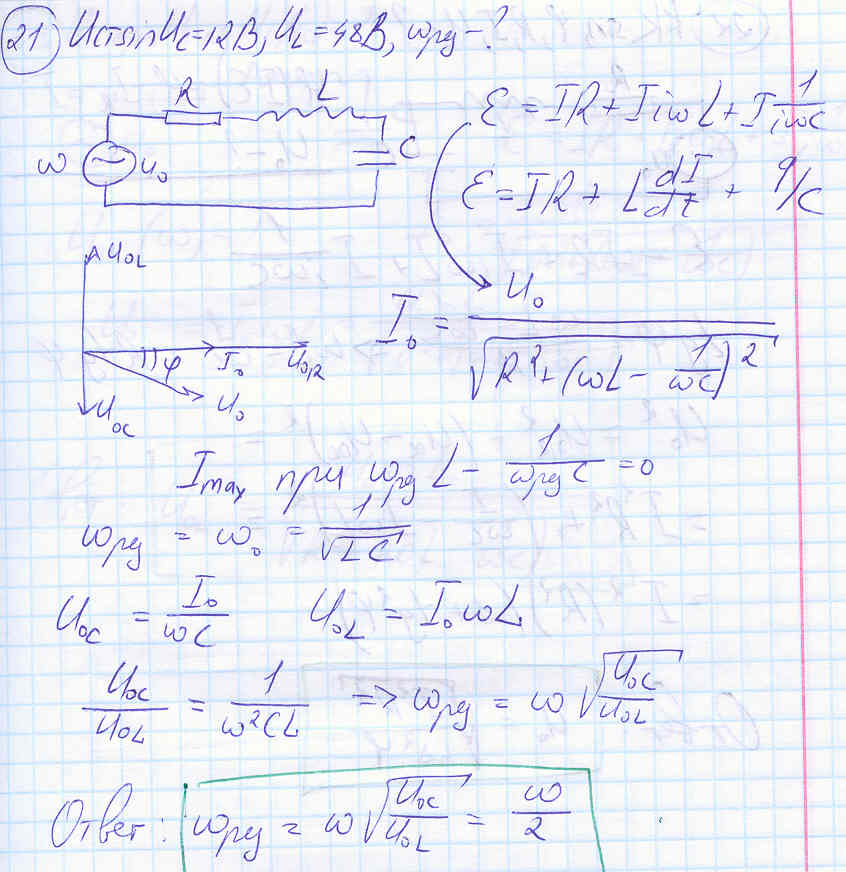 21) U_C=12В, U_L=48В, ω_рез-?
R L
ω U₀ C
ε = IR + IiωL + I 1/(iωC)
ε = IR + L dI/dt + q/C
U₀L
φ I₀ U₀R
U₀
U₀C
I₀ = U₀/√(R² + (ωL - 1/(ωC))²)
I_max при ω_рез L - 1/(ω_рез C) = 0
ω_рез = ω₀ = 1/√(LC)
U₀C = I₀/(ωC) U₀L = I₀ωL
U₀C/U₀L = 1/(ω²CL) => ω_рез = ω√(U₀C/U₀L)
Ответ: ω_рез = ω√(U₀C/U₀L) = ω/2